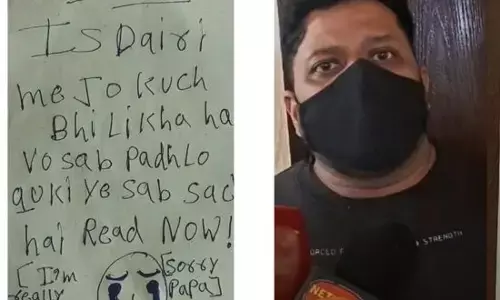 Is Dairi
me Jo kuch
Bhi Likha ha
Vo sab Padhlo
quki ye sab sac
hai Read NOW!
[I'm
really
[Sorry
Papa]
STRENGTH
NET